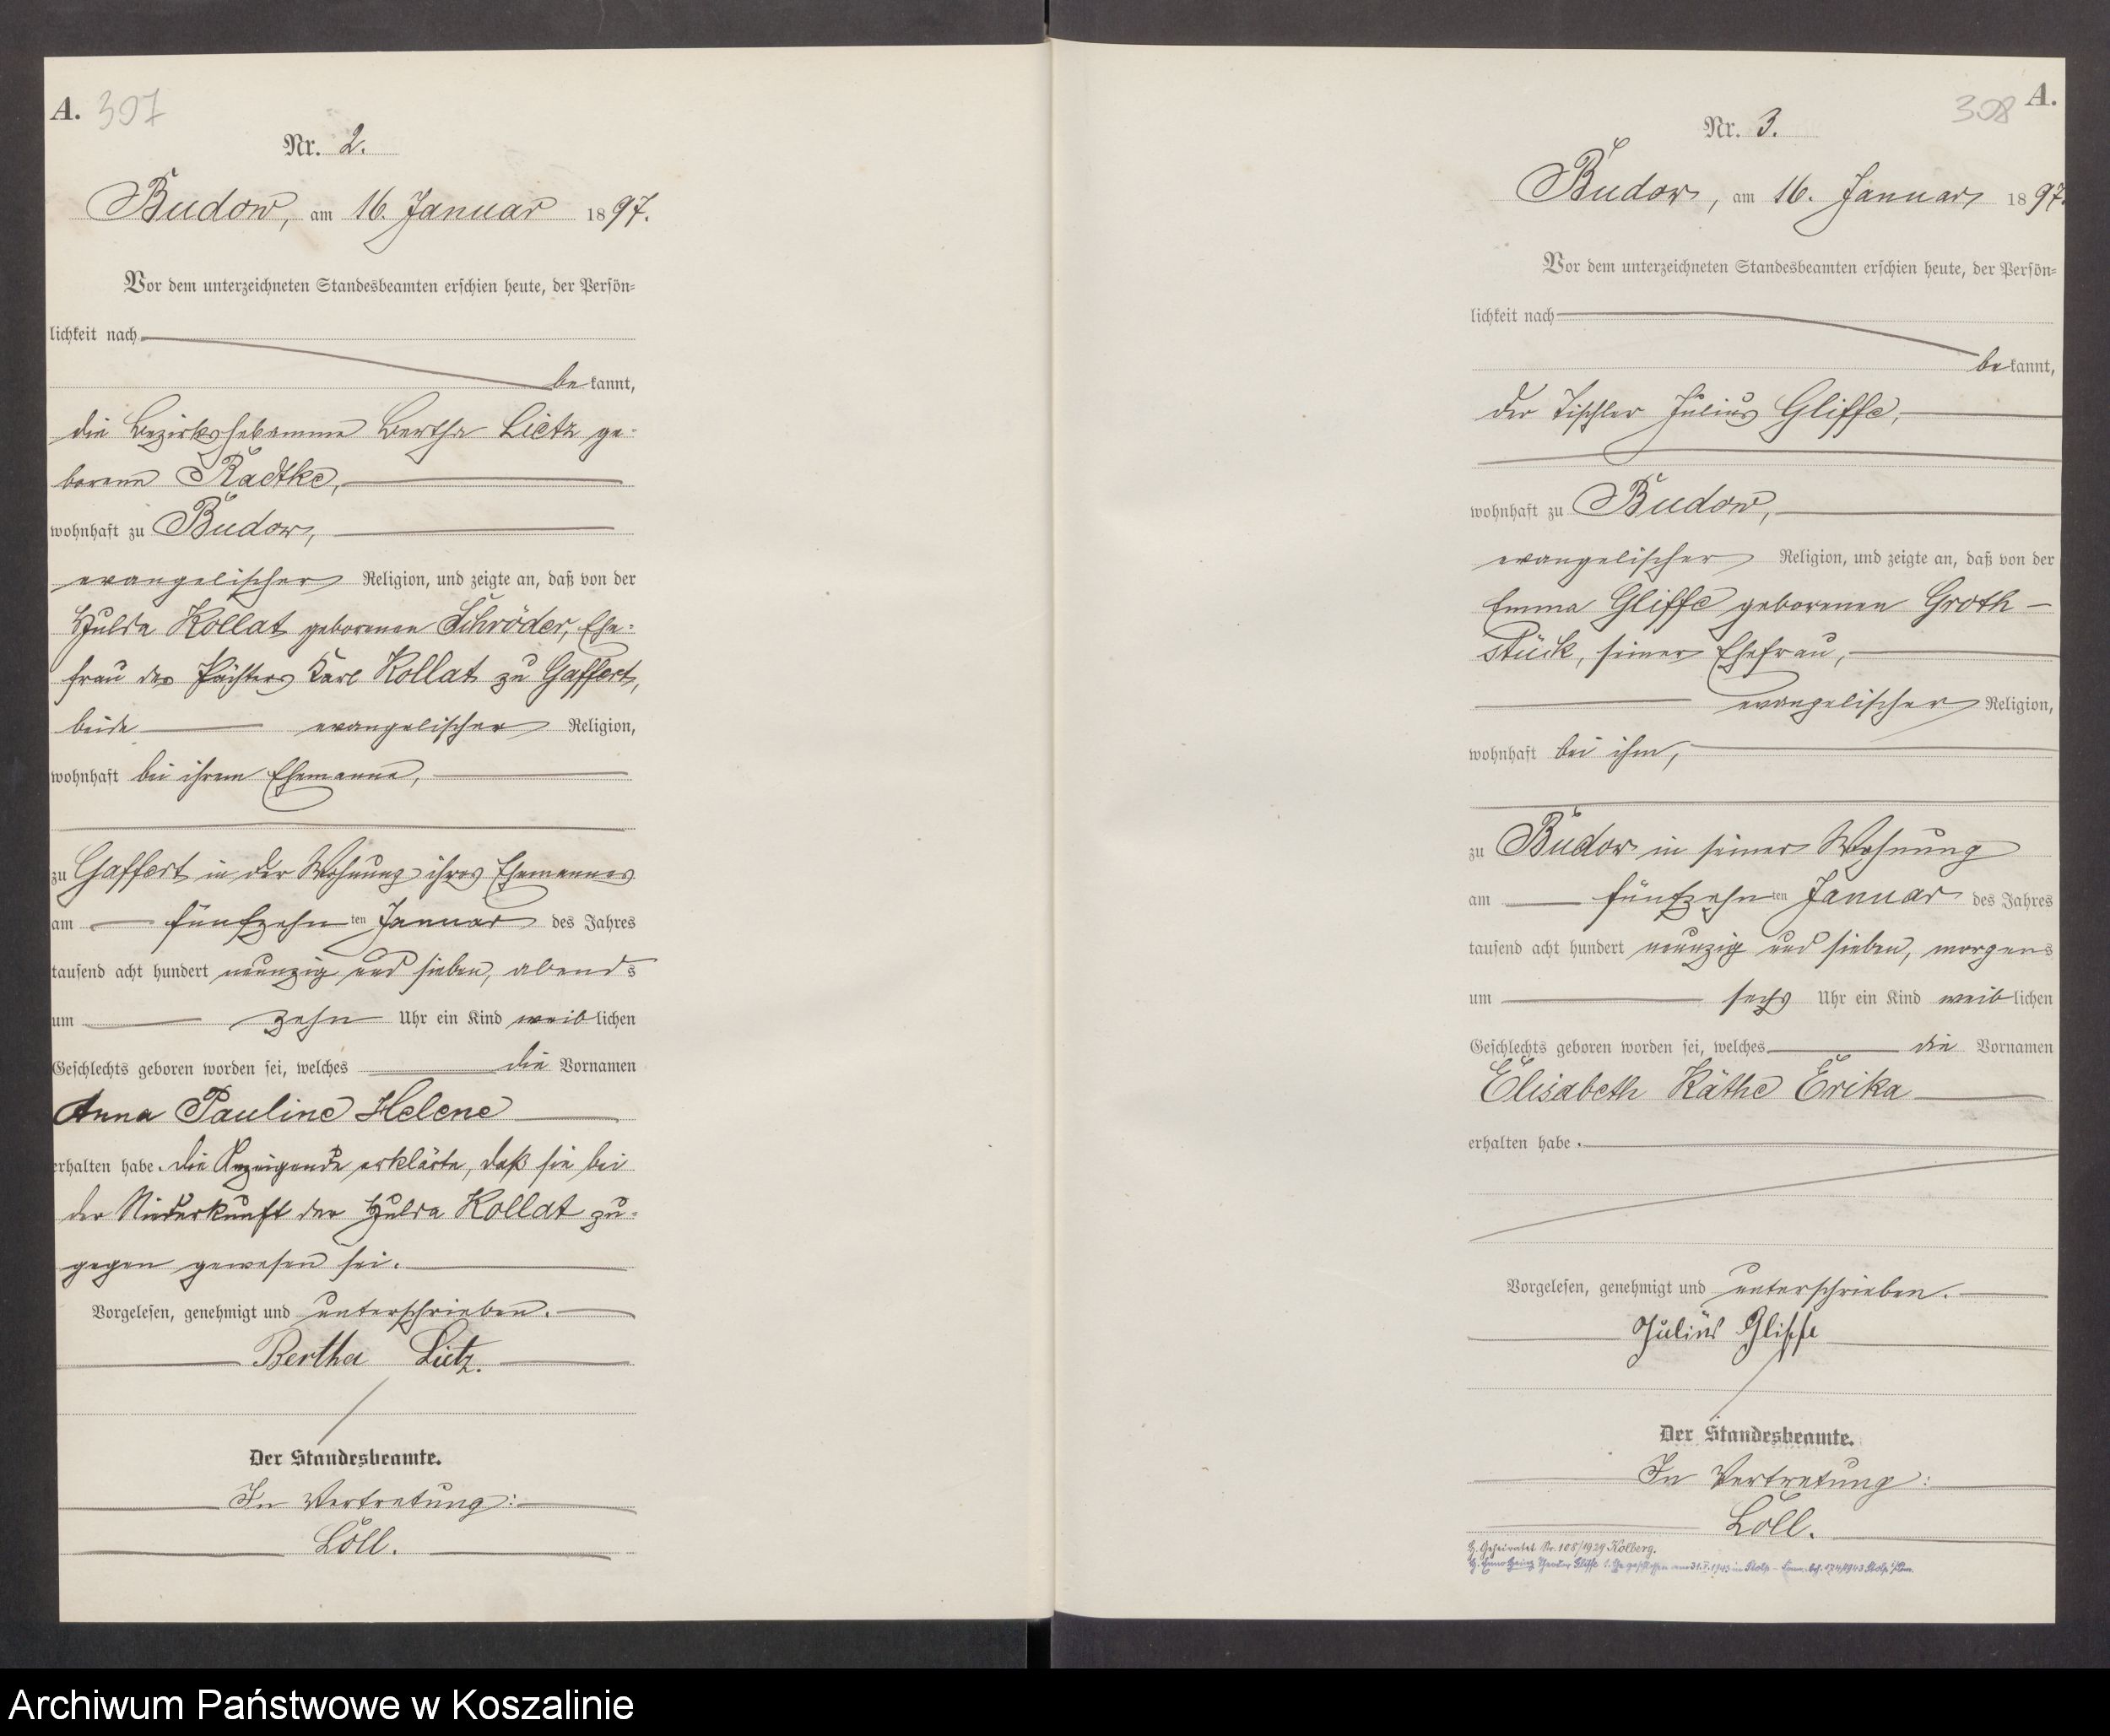 A. 307
Nr. 2.
Budow, am 16. Januar 1897.
Vor dem unterzeichneten Standesbeamten erschien heute, der Persön-
lichkeit nach
bekannt,
die Bezirkshebamme Bertha Lietz ge-
borene Radtke,
wohnhaft zu Budow,
evangelischer Religion, und zeigte an, daß von der
Hulda Kollat geborenen Schröder, Ehe-
frau des Pächters Karl Kollat zu Gaffert,
beide evangelischer Religion,
wohnhaft bei ihrem Ehemanne,
zu Gaffert in der Wohnung ihres Ehemannes
am fünfzehnten Januar des Jahres
tausend acht hundert neunzig und sieben, abends
um zehn Uhr ein Kind weiblichen
Geschlechts geboren worden sei, welches die Vornamen
Anna Pauline Helene
erhalten habe. Die Anzeigende erklärte, daß sie bei
der Niederkunft der Hulda Kollat zu-
gegen gewesen sei.
Vorgelesen, genehmigt und unterschrieben.
Bertha Lietz.
Der Standesbeamte.
In Vertretung:
Löll.
308 A.
Nr. 3.
Budow, am 16. Januar 1897.
Vor dem unterzeichneten Standesbeamten erschien heute, der Persön-
lichkeit nach
bekannt,
der Tischler Julius Gliffe,
wohnhaft zu Budow,
evangelischer Religion, und zeigte an, daß von der
Emma Gliffe geborenen Groth-
stück, seiner Ehefrau,
evangelischer Religion,
wohnhaft bei ihm,
zu Budow in seiner Wohnung
am fünfzehnten Januar des Jahres
tausend acht hundert neunzig und sieben, morgens
um sechs Uhr ein Kind weiblichen
Geschlechts geboren worden sei, welches die Vornamen
Elisabeth Käthe Erika
erhalten habe.
Vorgelesen, genehmigt und unterschrieben.
Julius Gliffe
Der Standesbeamte.
In Vertretung:
Löll.
Geheiratet Nr. 108/1929 Kolberg.
Gliffe 1. Ehe geschlossen am 31. in Stolp
Archiwum Państwowe w Koszalinie